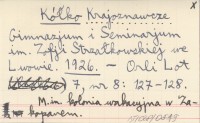 x
Kółko Krajoznawcze
Gimnazjum i Seminarjum
im. Zofji Strzałkowskiej we
Lwowie. 1926. – Orli Lot
7, nr 8: 127-128.
M.in. kolonia wakacyjna w Za-
kopanem.